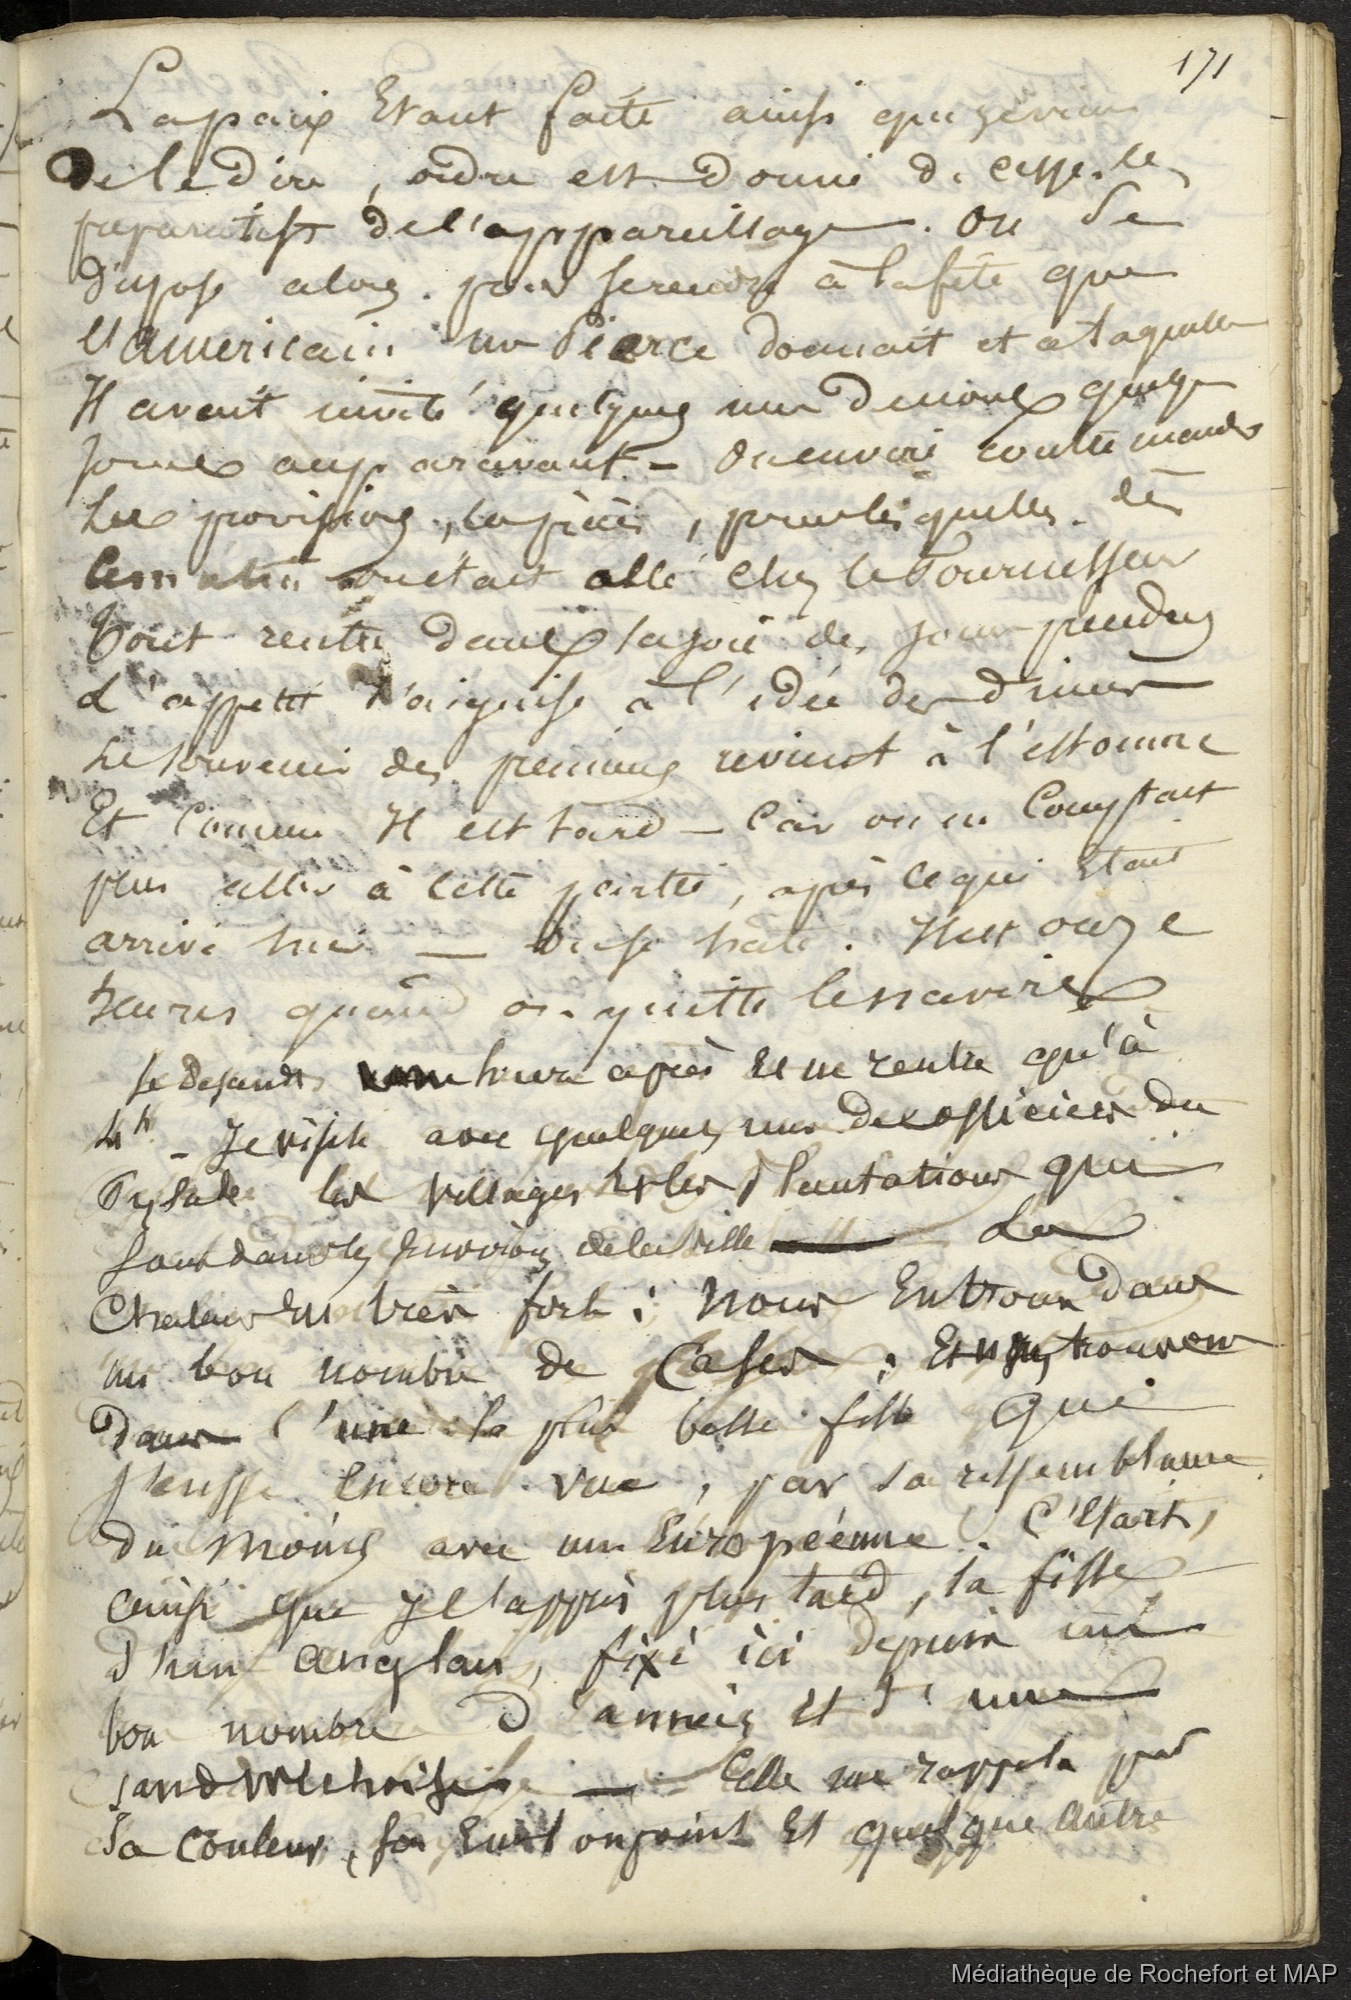 171
La paix Etant faite ainsi que je viens
de le dire, ordre est donné de cesser les
preparatifs de l'appareillage. On se
dispose alors pour se rendre à la fête que
l'americain mr Pierce donnait et à laquelle
Il avait invité quelques uns de nous quelques
jours auparavant - On envoie contremander
Les provisions, pour lesquelles dès
le matin on était allé chez le fournisseur
Tout rentre dans la joie des jours perdus
L'appetit s'aiguise à l'idée de diner
Le souvenir des premiers revient à l'estomac
Et Comme Il est tard - Car on ne Comptait
plus aller à cette partie, après ce qui Etait
arrivé hier — on se hâte. Il est onze
heures quand on quitte le navire
Je descends une heure après et ne rentre qu'à
4h - Je visite avec quelques uns des officiers du
les villages et les plantations qui
sont dans les Environs de la ville La
Chaleur Est très forte; Nous Entrons dans
un bon nombre de Cases; Et nous trouvons
dans l'une la plus belle fille que
J'eusse Encore vue, par sa ressemblance
du moins avec une Européenne. C'Etait,
ainsi que je l'appris plus tard, la fille
d'un anglais, fixé ici depuis un
bon nombre d'années et d'une
sandwichoise — Elle me rappela par
Sa couleur, son Embonpoint Et quelque autre
Médiathèque de Rochefort et MAP